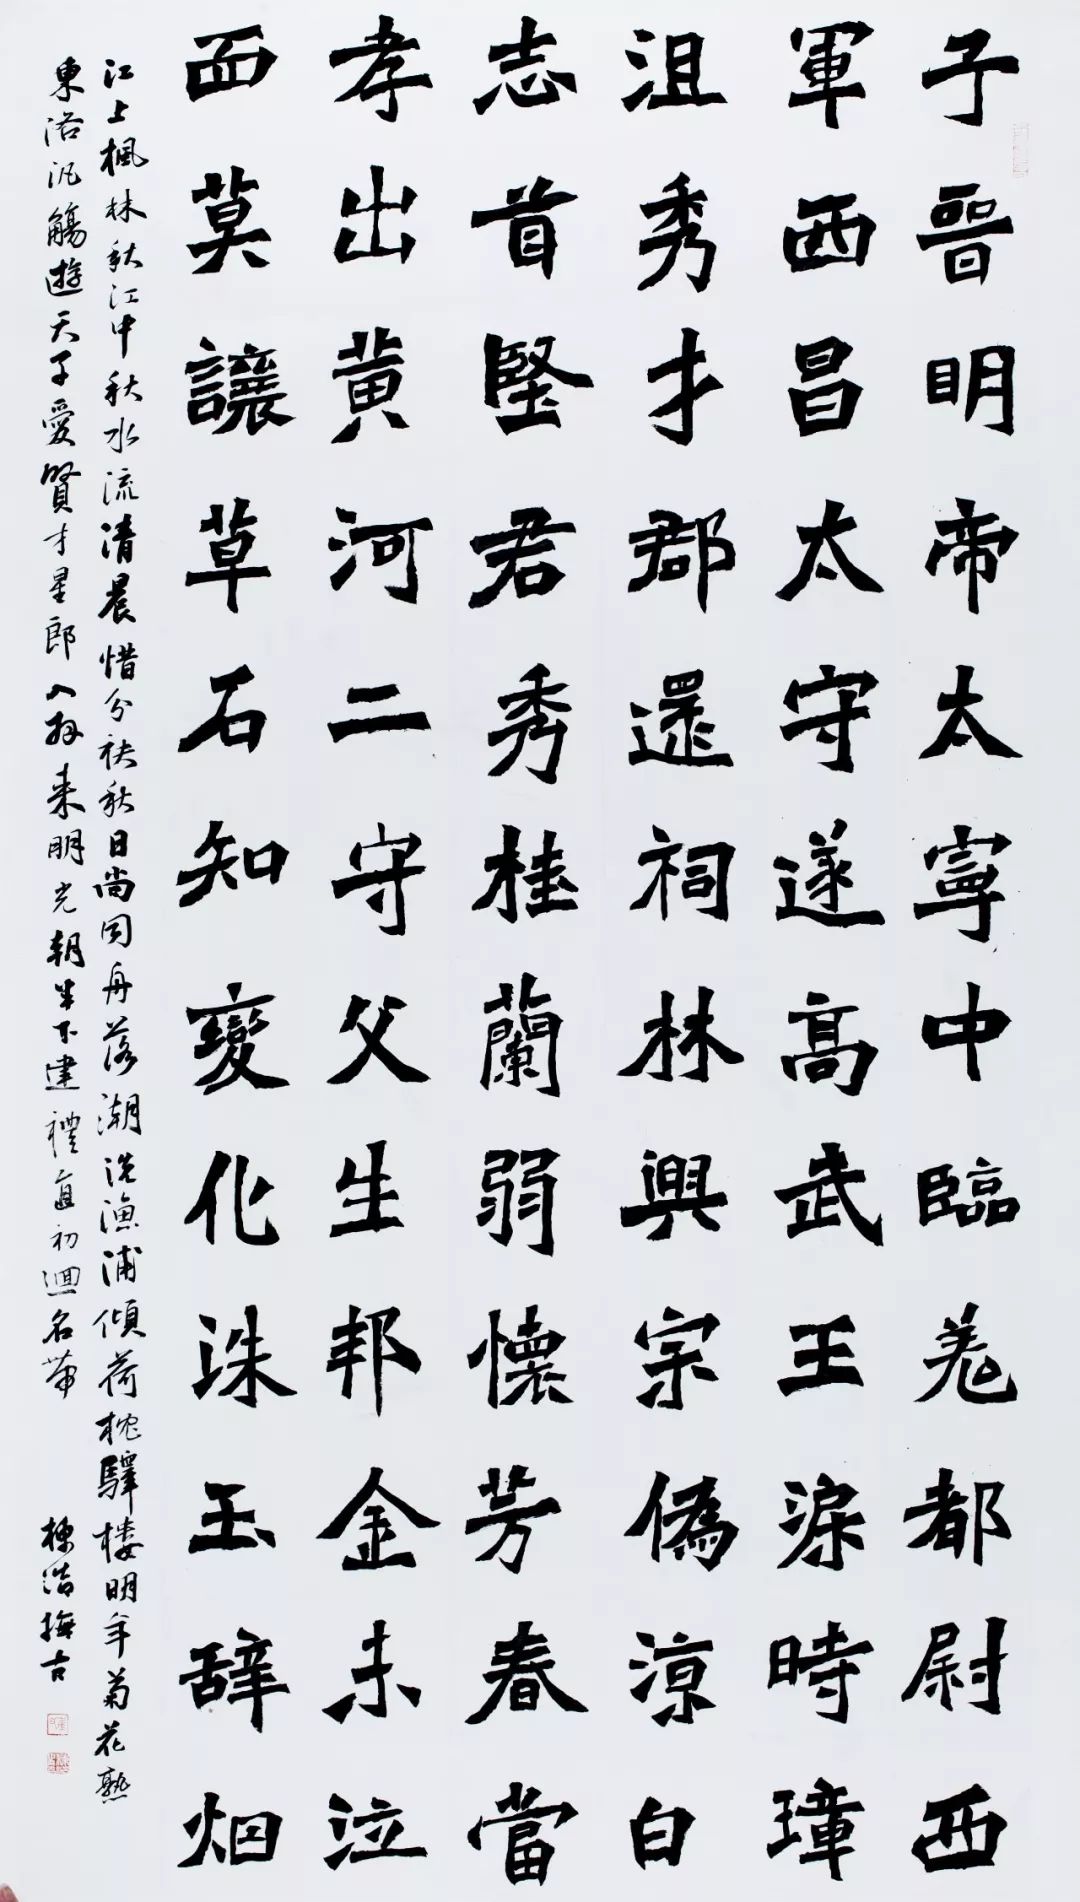 子晉明帝太寧中臨羌都尉西
軍西昌太守遂高武王淚時璋
沮秀才郡還祠林興宗偽涼白
志首堅君秀桂蘭弱懷芳春當
孝出黃河二守父生邦金未泣
面莫讓草石知變化洙玉辭烟
江上楓林秋江中秋水流清晨惜分袂秋日尚同舟落潮洗漁浦傾荷枕驛樓明年菊花熟
東洛汎觴遊天子愛賢才星郎入拜来明光朝半下建禮直初迴名帶
棟浩撫古